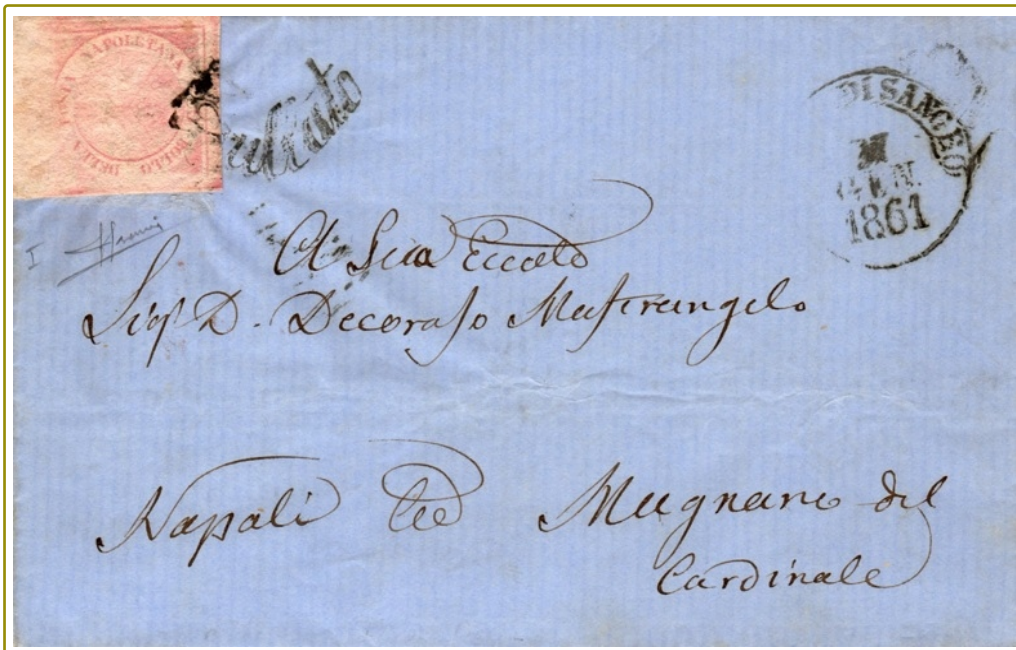 BOLLO DELLA POSTA NAPOLETANA
DISANGRO
GEN.
1861
I
A Sua Eccelo
Sigr D. Decoroso Mastrangelo
Napoli
Mugnano del
Cardinale